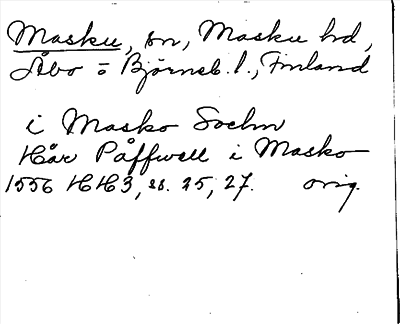 Masku, sn, Masku hd,
Åbo o Björneb. l., Finland
i Masko Sochn
Håår Påffwell i Masko
1556 HH3, s. 25, 27. orig.